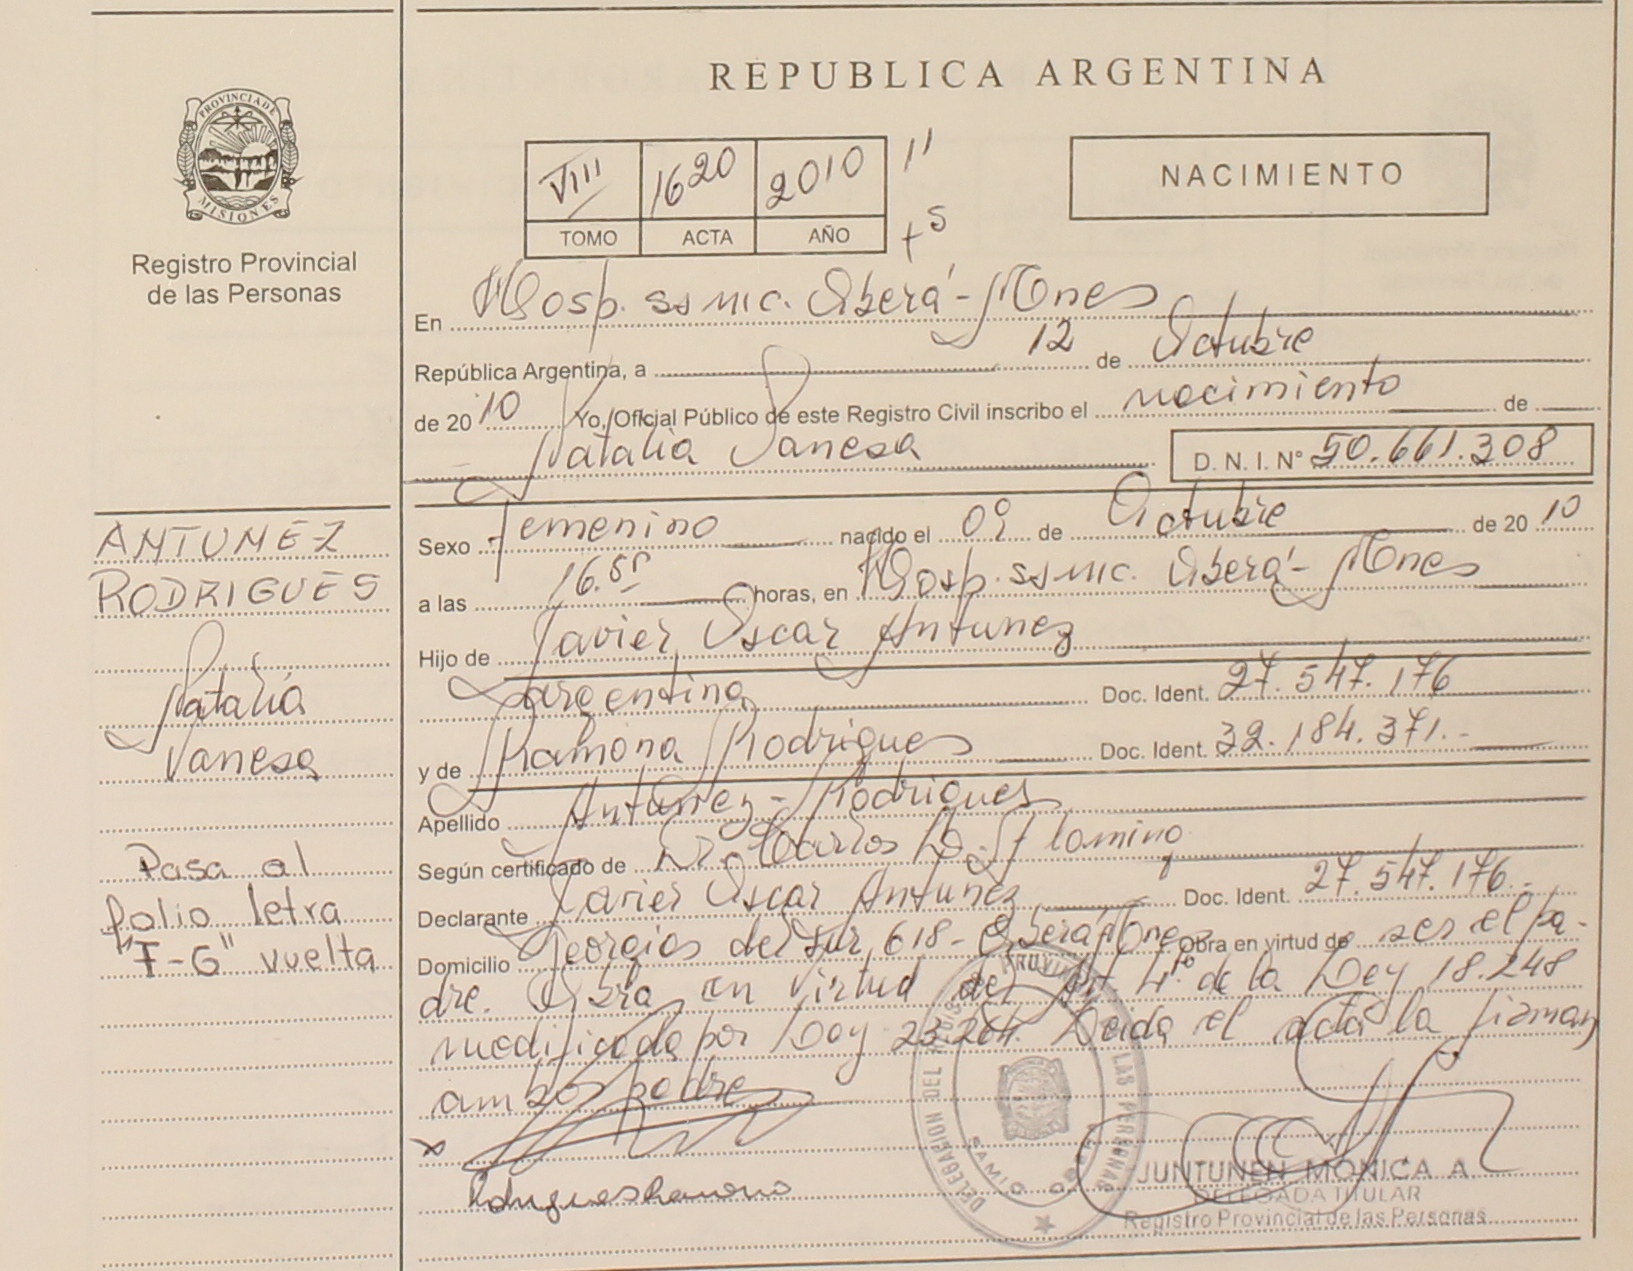 PROVINCIA DE
MISIONES
Registro Provincial
de las Personas
REPUBLICA ARGENTINA
VIII 1620 2010 11
TOMO ACTA AÑO +5
NACIMIENTO
En Hosp. ss mic. Oberá - Mnes
República Argentina, a 12 de Octubre
de 2010 Yo, Oficial Público de este Registro Civil inscribo el nacimiento de
Natalia Vanesa D. N. I. Nº 50.661.308
Sexo femenino nacido el 09 de Octubre de 2010
a las 16.55 horas, en Hosp. ss mic. Oberá - Mnes
Hijo de Javier Oscar Antunez
Argentina Doc. Ident. 27.547.176
y de Ramona Rodrigues Doc. Ident. 32.184.371.-
Apellido Antunez - Rodrigues
Según certificado de Dr. Carlos
Declarante Javier Oscar Antunez Doc. Ident. 27.547.176.-
Domicilio Georgias del Sur 618 - Oberá Mnes Obra en virtud de ser el pa-
dre. Obra en virtud del Art 4º de la Ley 18.248
modificada por Ley 23.264. Leida el acta la firman
ambos padres
x
Rodrigues Ramona
JUNTUNEN MONICA A.
DELEGADA TITULAR
Registro Provincial de las Personas
ANTUNEZ
RODRIGUES
Natalia
Vanesa
Pasa al
folio letra
"F-G" vuelta